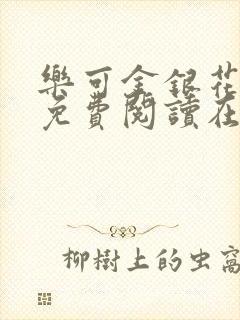 樂可金銀花
免費閱讀在
柳樹上的虫窩